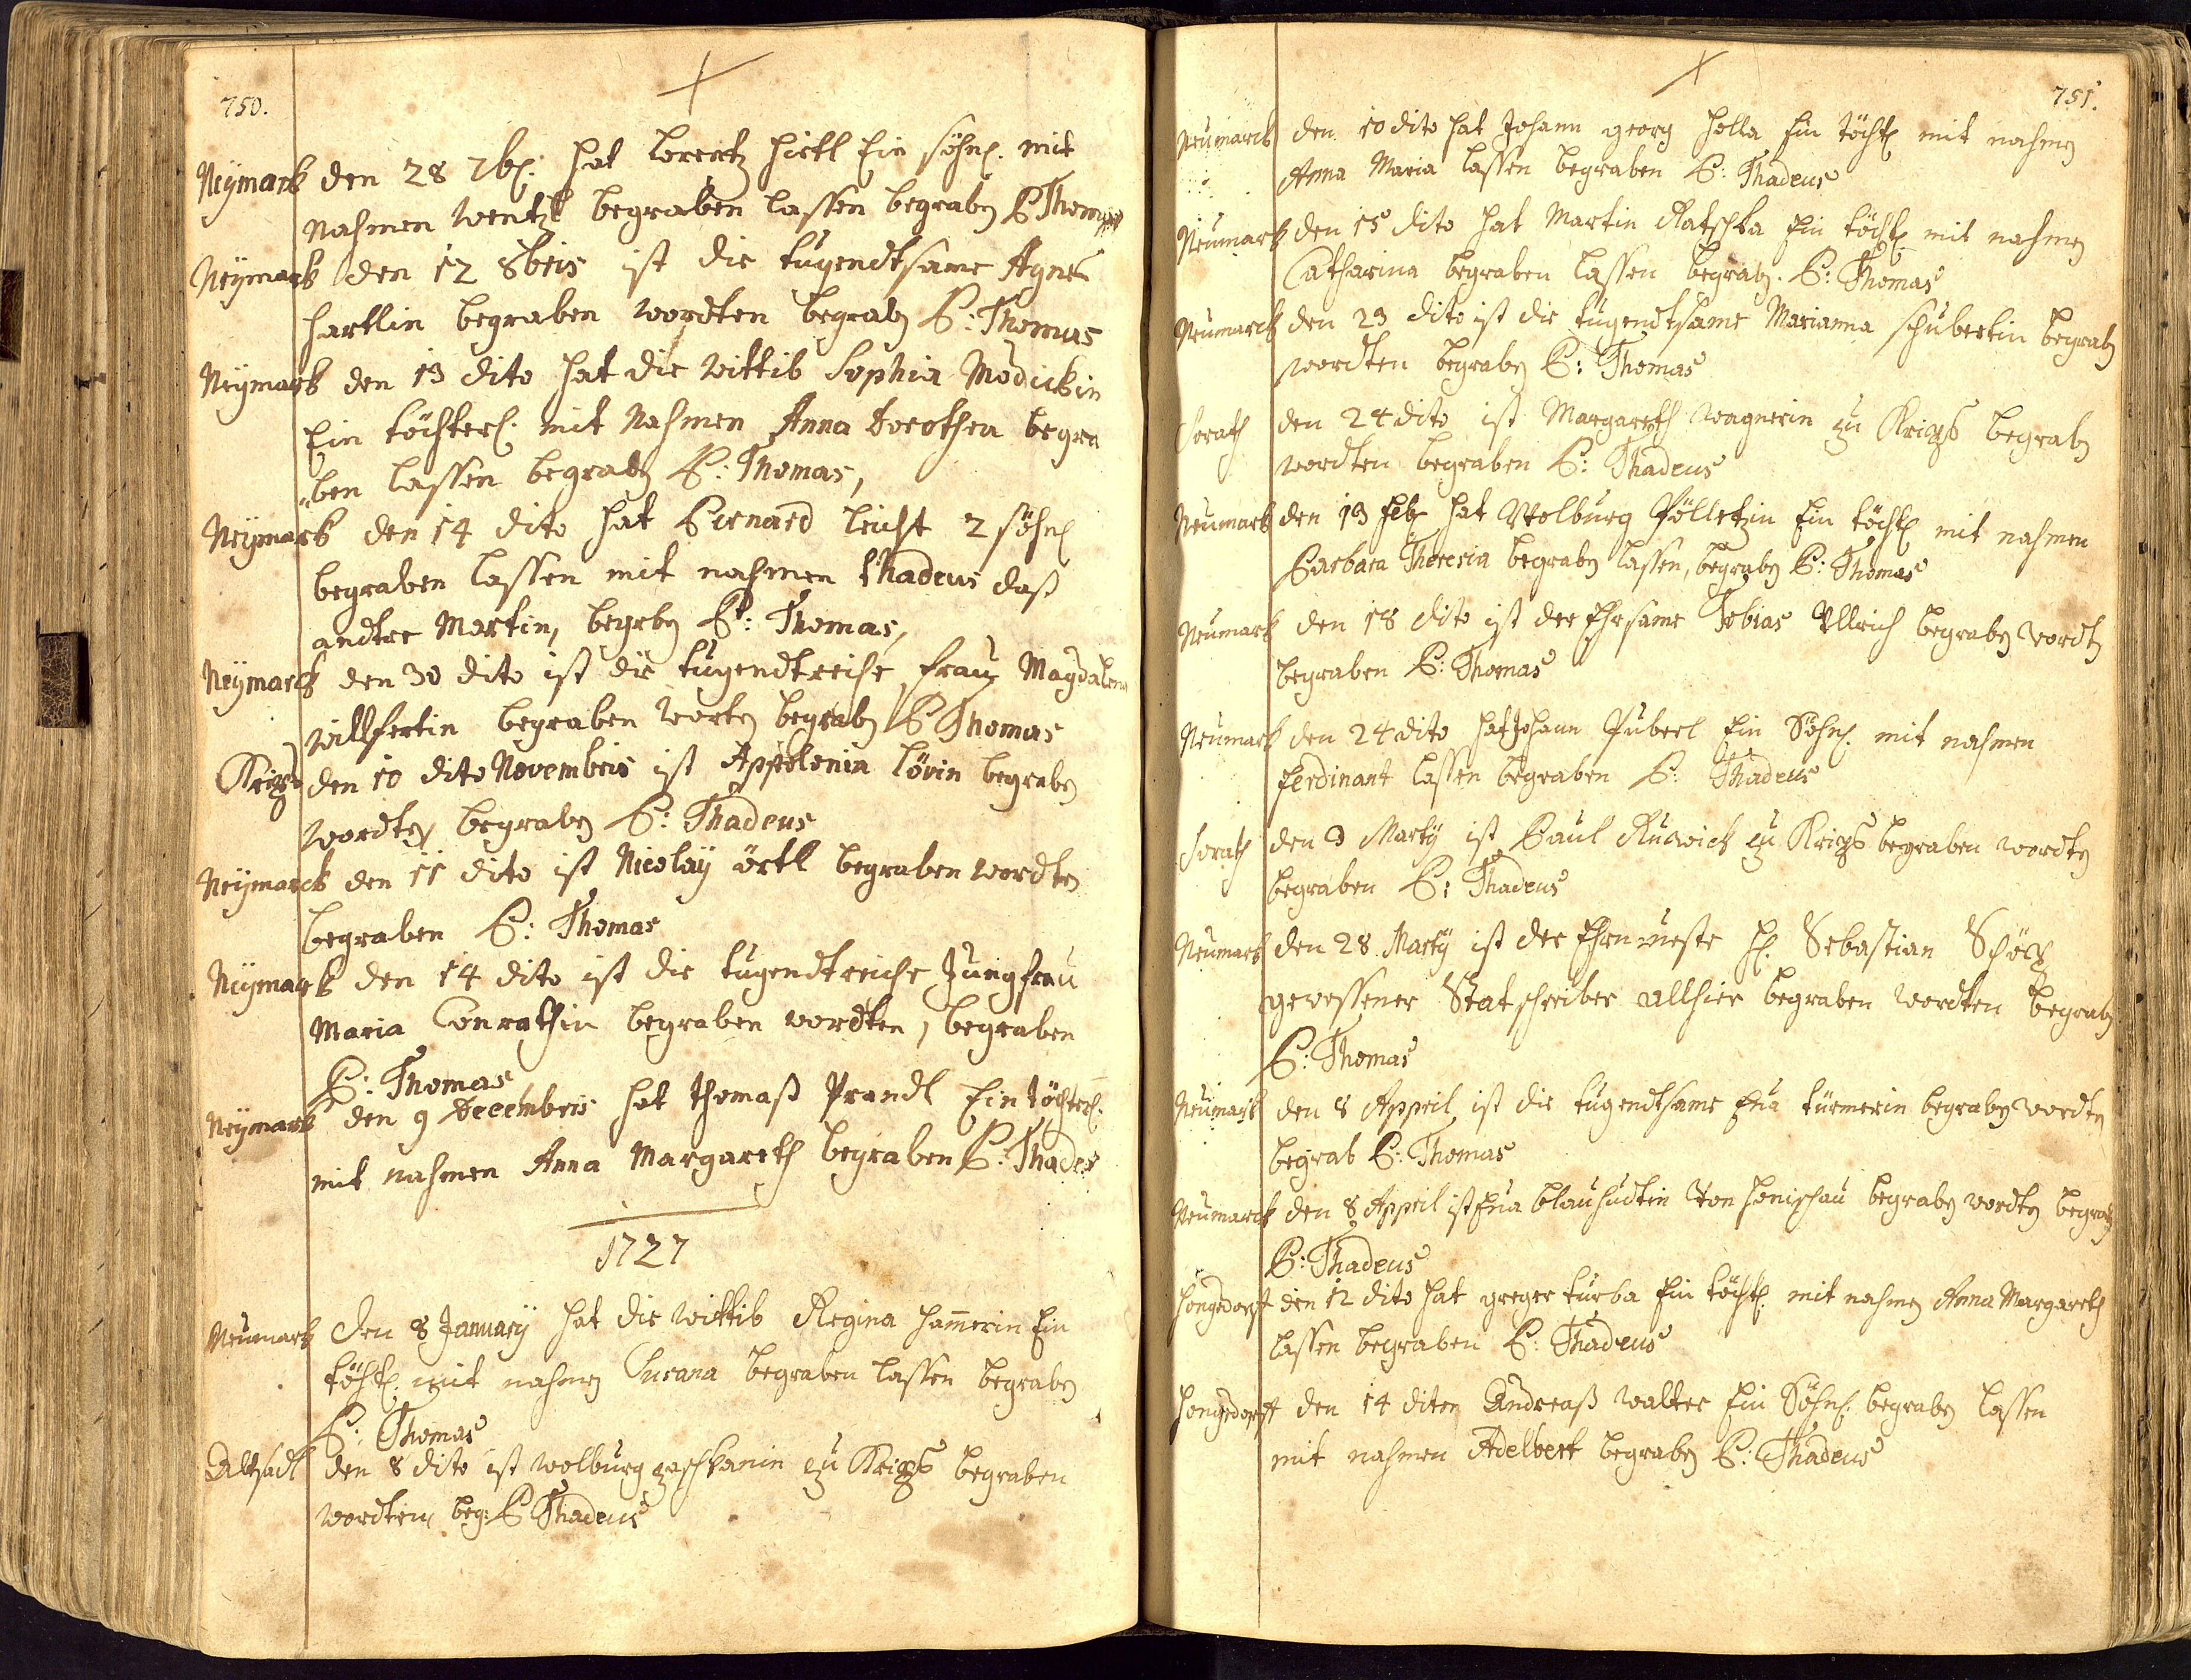 750.
Neÿmark den 28 7b: hat Lorentz Hirtl Ein söhnl. mit
Nahmen Wentzl begraben lassen begraben P Thomas
Neÿmark den 12 8bris ist die tugendtsame Agnes
Hartlin begraben wordten begrab P: Thomas
Neÿmark den 13 dito hat die wittib Sophia Modickin
Ein töchterl. mit Nahmen Anna Dorothea begra
ben lassen begrab P: Thomas,
Neÿmark den 14 dito hat Bernard leicht 2 söhnl
begraben lassen mit nahmen thadeus daß
andtre Martin, begrbn P: Thomas,
Neÿmarck den 30 dito ist die tugendtreiche frau Magdalena
willfertin begraben worten begrabn P Thomas
Krips den 10 dito Novembris ist Appolonia lövin begraben
wordten begraben P: Thadeus
Neÿmarck den 11 dito ist Nicolaÿ örtl begraben wordten
begraben P: Thomas
Neÿmark den 14 dito ist die tugendtreiche Jungfrau
Maria Conrathin begraben wordten, begraben
P: Thomas,
Neÿmark den 9 Decembris hat thomaß Prandl Ein töchterl.
mit nahmen Anna Margareth begraben P: Thades
1727
Neumark den 8 Januarÿ hat die wittib Regina Hamerin Ein
töcht. mit nahmen Susana begraben lassen begraben
P: Thomas
Altsadl den 8 dito ist wolburg zu Krips begraben
wordten beg: P Thadeus
751.
Neumarck den 10 dito hat Johann georg Holla Ein töcht mit nahmen
Anna Maria lassen begraben P: Thadeus
Neumark den 15 dito hat Martin Ratschka Ein töcht mit nahmen
Catharina begraben lassen begrab. P: Thomas
Neumarck den 23 dito ist die tugendtsame Marianna schubertin begrab
wordten begraben P: Thomas
Sorath den 24 dito ist Margareth wagnerin zu Krips begrab
wordten begraben P: Thadeus
Neumark den 13 feb hat Wolburg Pölletzin Ein töcht mit nahmen
Barbara Theresia begraben lassen, begraben P: Thomas
Neumark den 18 dito ist der Ehrsame Tobias Ullrich begraben wordt
begraben P: Thomas
Neumark den 24 dito hat Johann Puberl Ein Söhnl. mit nahmen
ferdinant lassen begraben P: Thadeus
Sorath den 3 Martÿ ist Paul Ruwick zu Krips begraben wordten
begraben P: Thadeus
Neumark den 28 Martÿ ist der Ehrnveste H. Sebastian
gewessener Statschreiber allhier begraben wordten begrab
P: Thomas
Neumark den 8 Appril ist die tugendtsame Eva türmerin begraben wordten
begrab P: Thomas
Neumarck den 8 Appril ist Eva blauhudtin von Honischau begraben wordten begrab
P: Thadeus
Hongsdorff den 12 dito hat greger turba Ein töcht. mit nahmen Anna Margareth
lassen begraben P: Thadeus
Hongsdorff den 14 diten Andreaß walter Ein Söhnl. begraben lassen
mit nahmen Adelbert begraben P: Thadeus